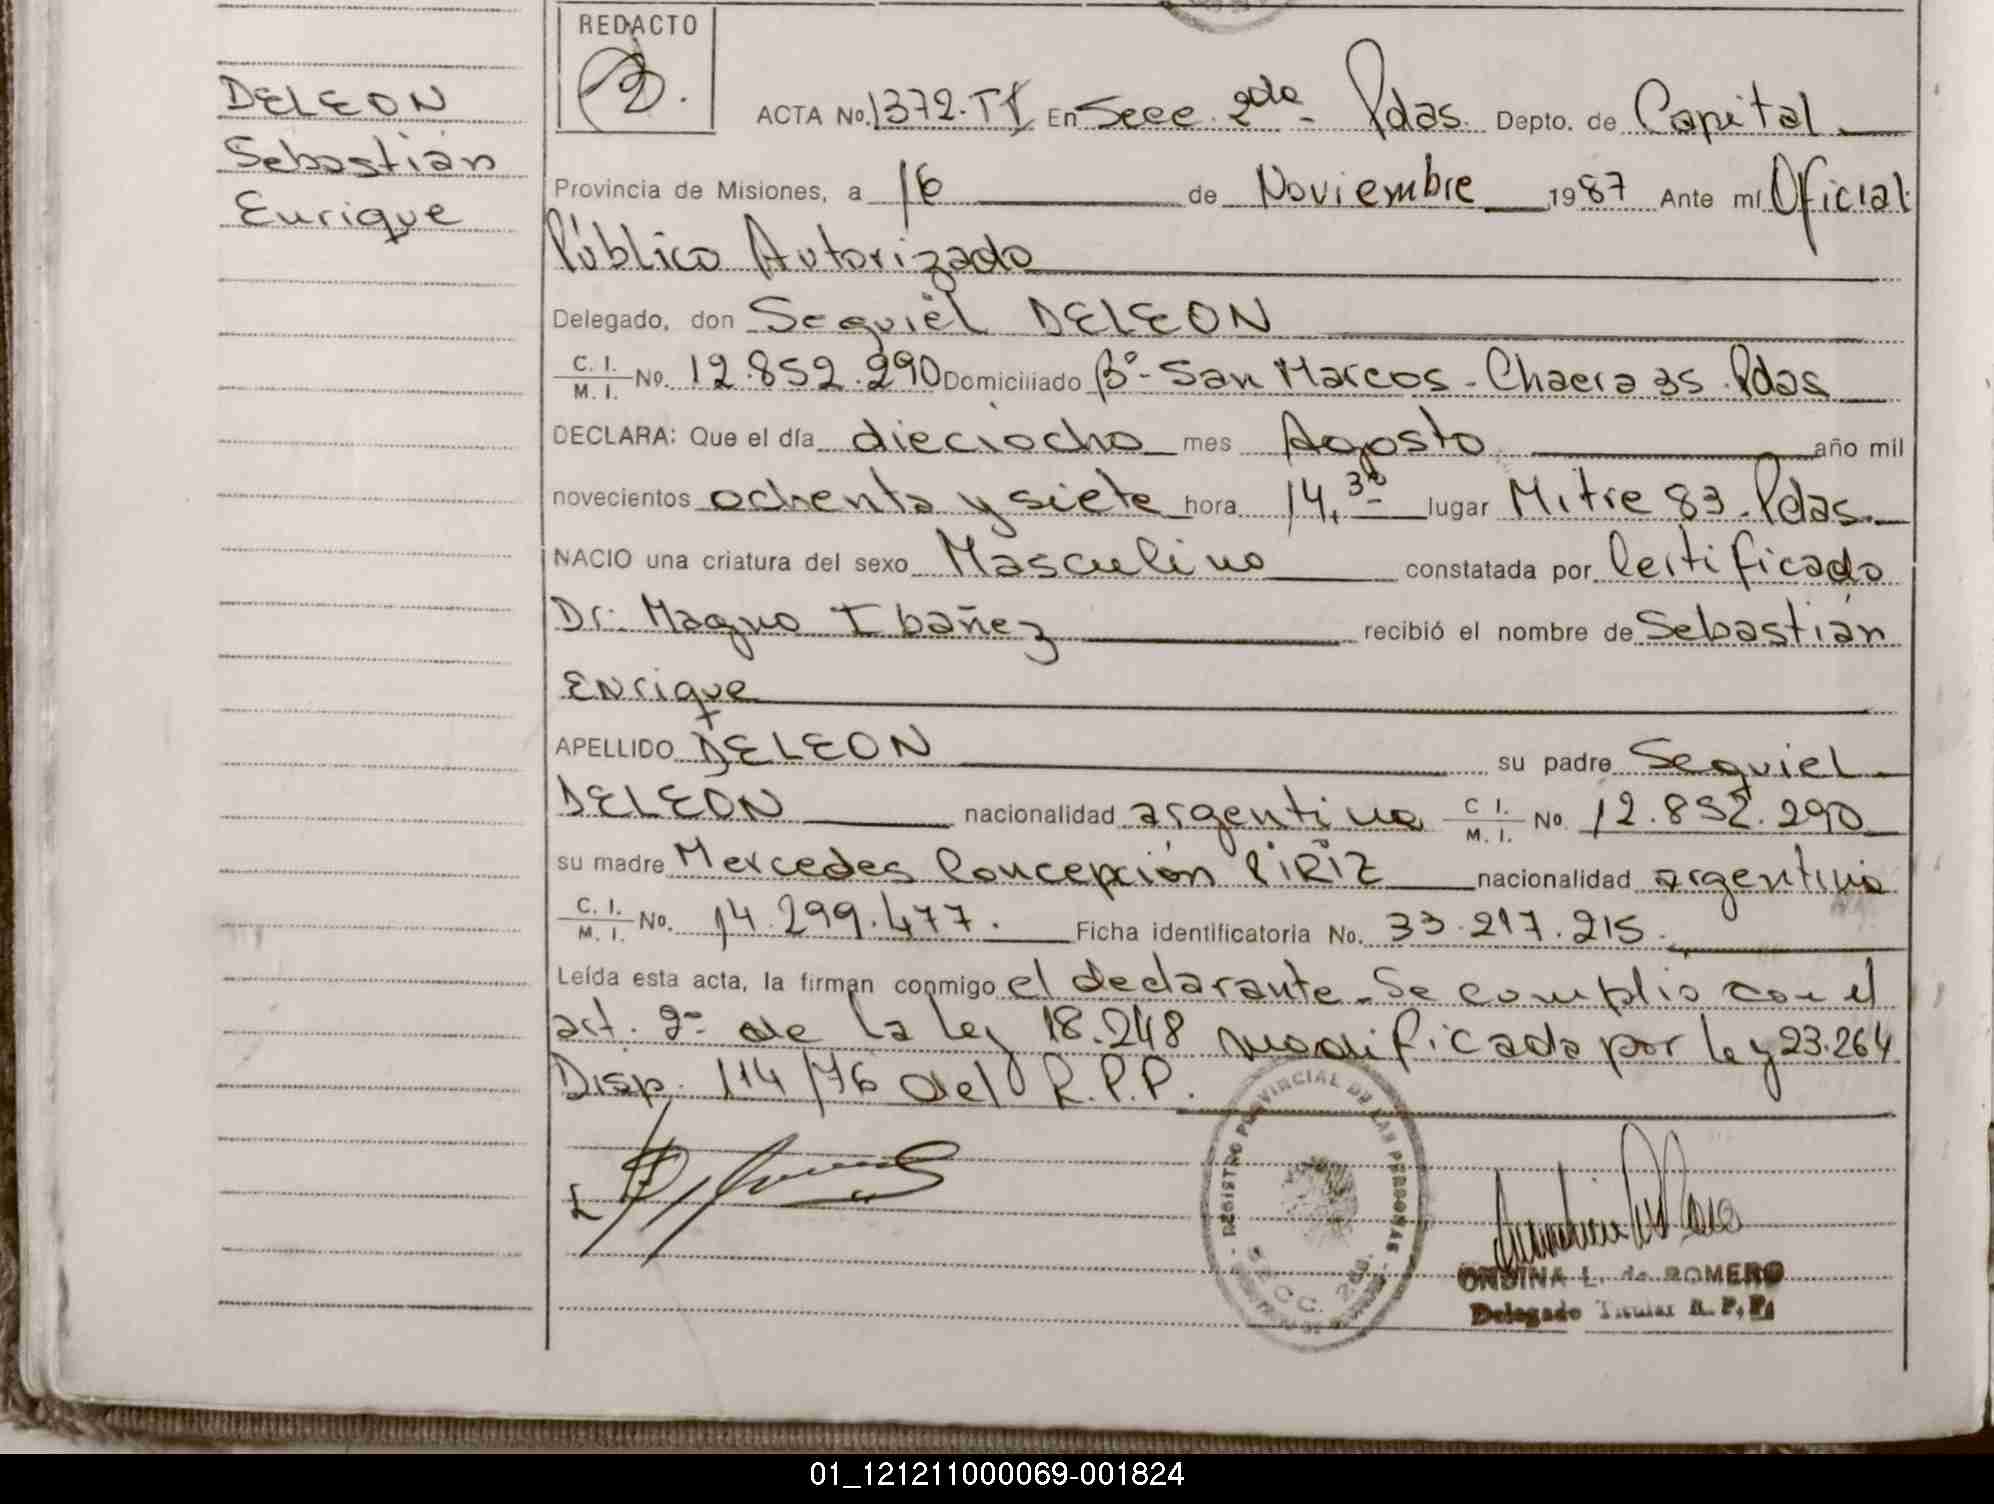 REDACTO
DELEON
Sebastián
Enrique
ACTA No. 1372. TI En Secc. 2da - Pdas. Depto. de Capital
Provincia de Misiones, a 16 de Noviembre 1987 Ante mí Oficial
Público Autorizado
Delegado, don Sequiel DELEON
C. I. / M. I. No. 12.852.290 Domiciliado Bº- San Marcos - Chacra 35. Pdas
DECLARA: Que el día dieciocho mes Agosto año mil
novecientos ochenta y siete hora 14,30 lugar Mitre 83. Pdas.
NACIO una criatura del sexo Masculino constatada por Certificado
Dr. Magno Ibañez recibió el nombre de Sebastián
Enrique
APELLIDO DELEON su padre Sequiel
DELEON nacionalidad argentina C. I. / M. I. No. 12.852.290
su madre Mercedes Concepción PIRIZ nacionalidad argentina
C. I. / M. I. No. 14.299.477. Ficha identificatoria No. 33.217.215.
Leída esta acta, la firman conmigo el declarante. Se cumplió con el
art. 2º de la Ley 18.248 modificada por ley 23.264
Disp. 114/76 del R.P.P.
REGISTRO PROVINCIAL DE LAS PERSONAS
SECC. 2da.
ONDINA L. de ROMERO
Delegado Titular R. P. P.
01_121211000069-001824